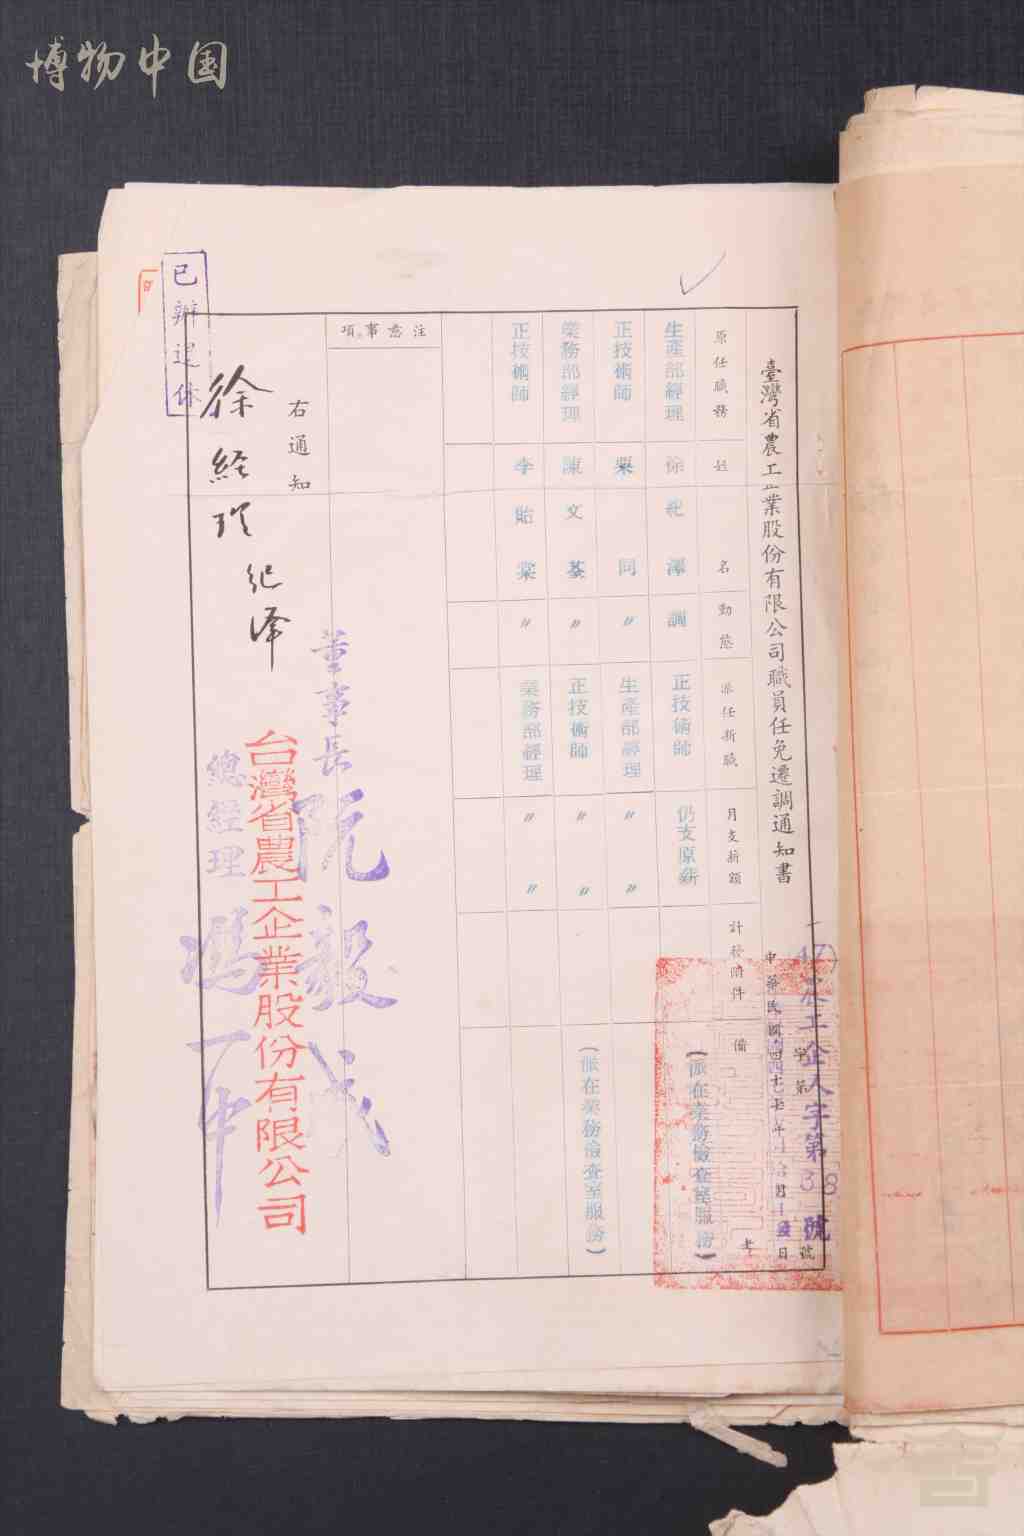 博物中国
臺灣省農工企業股份有限公司職員任免遷調通知書
農工企人字第38號
中華民國四十七年
字第
號
原任職務
姓名
動態
派任新職
月支薪額
計核附件
備考
生產部經理
徐紀澤
調
正技術師
仍支原薪
(派在業務檢查室服務)
正技術師
栗同
〃
生產部經理
〃
〃
業務部經理
陳文
〃
正技術師
〃
〃
(派在業務檢查室服務)
正技術師
李貽棠
〃
業務部經理
〃
〃
注意事項
右通知
徐經理
紀泽
董事長 阮毅成
台灣省農工企業股份有限公司
總經理 馮
已辦退休